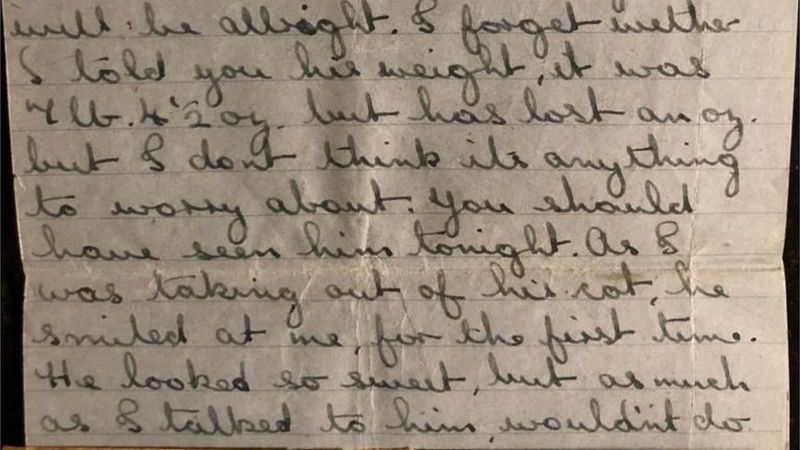 will be allright. I forget wether
I told you his weight, it was
7 lb. 4 1/2 oz. but has lost an oz.
but I dont think its anything
to worry about. You should
have seen him tonight. As I
was taking out of his cot, he
smiled at me, for the first time.
He looked so sweet, but as much
as I talked to him, wouldn't do